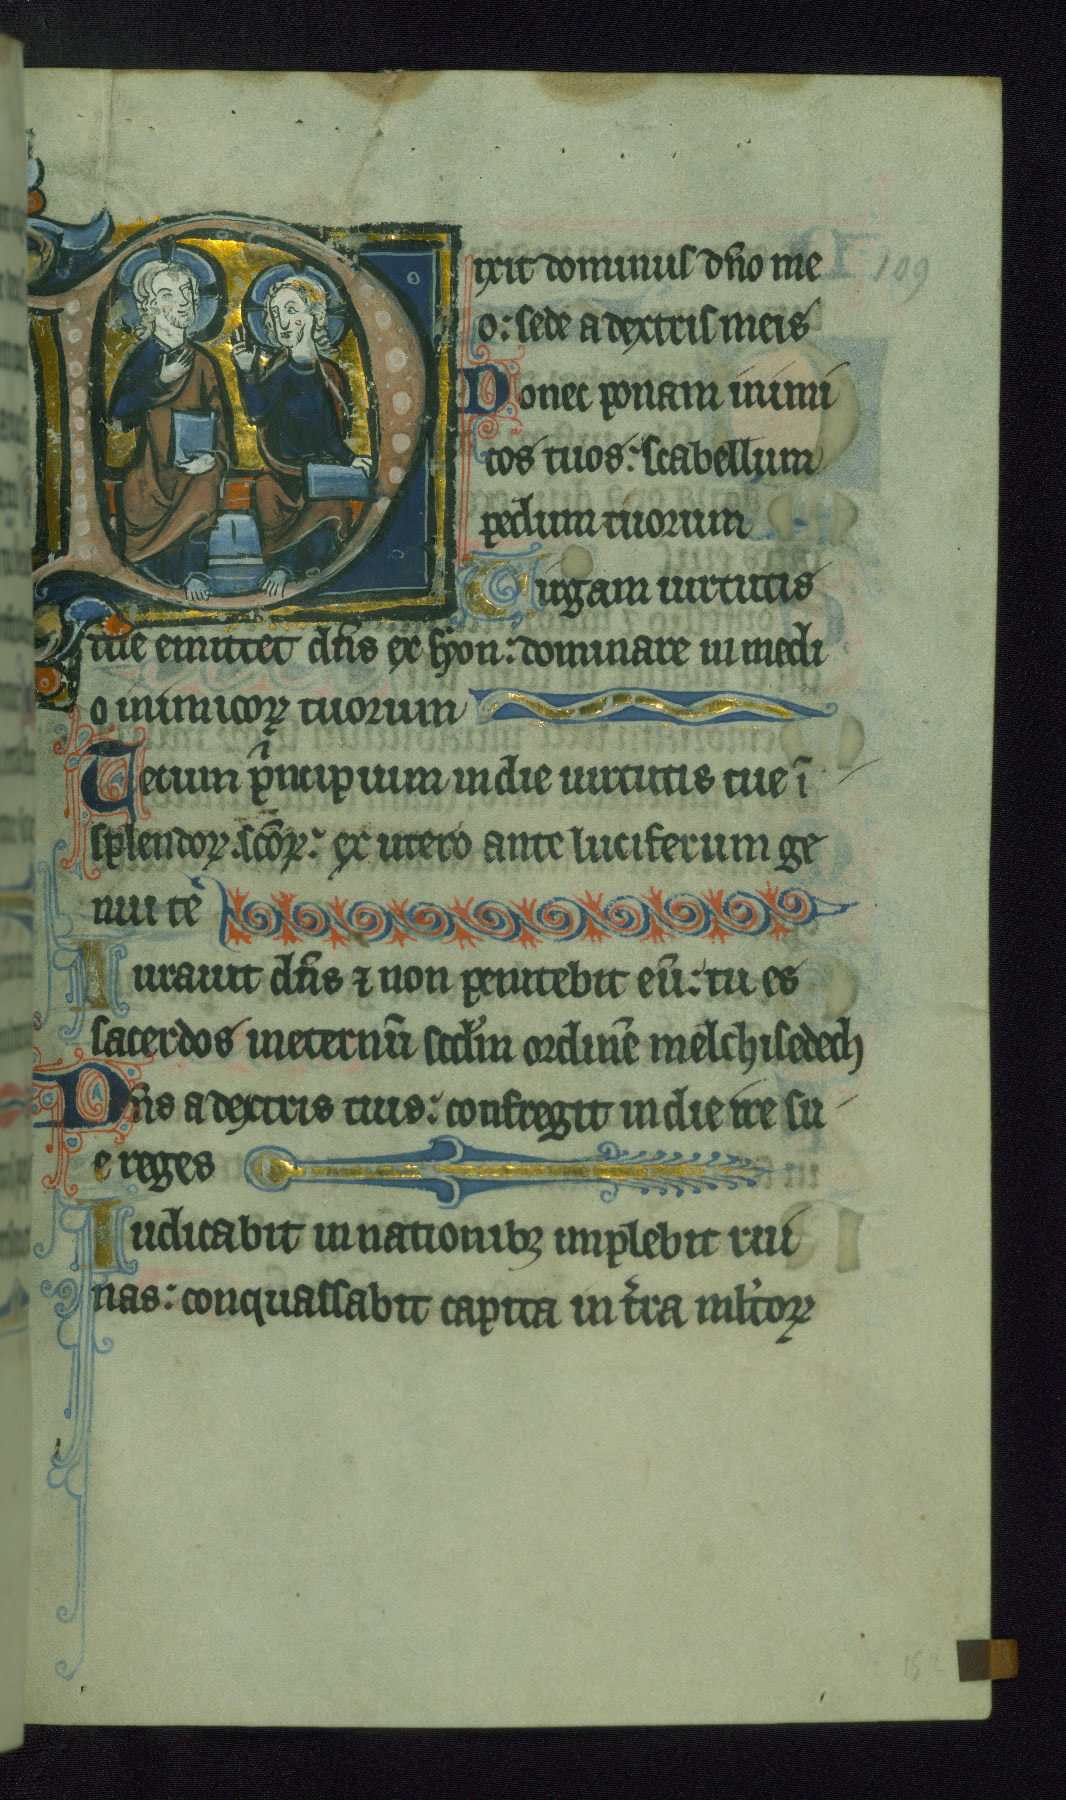 Dixit dominus dn̄o me
109
o: sede a dextris meis
Donec ponam inimi
cos tuos: scabellum
pedum tuorum
Uirgam uirtutis
tue emittet dn̄s ex syon: dominare in medi
o inimicoꝝ tuorum
Tecum pͥncipium in die uirtutis tue ī
splendoꝝ. sc̄oꝝ: ex utero ante luciferum ge
nui te
Iurauit dn̄s ⁊ non penitebit eū: tu es
sacerdos ineternū scd̄m ordinē melchisedech
Dn̄s a dextris tuis: confregit in die ire su
e reges
Iudicabit in nationibꝫ implebit rui
nas: conquassabit capita in t̄ra ml̓toꝝ